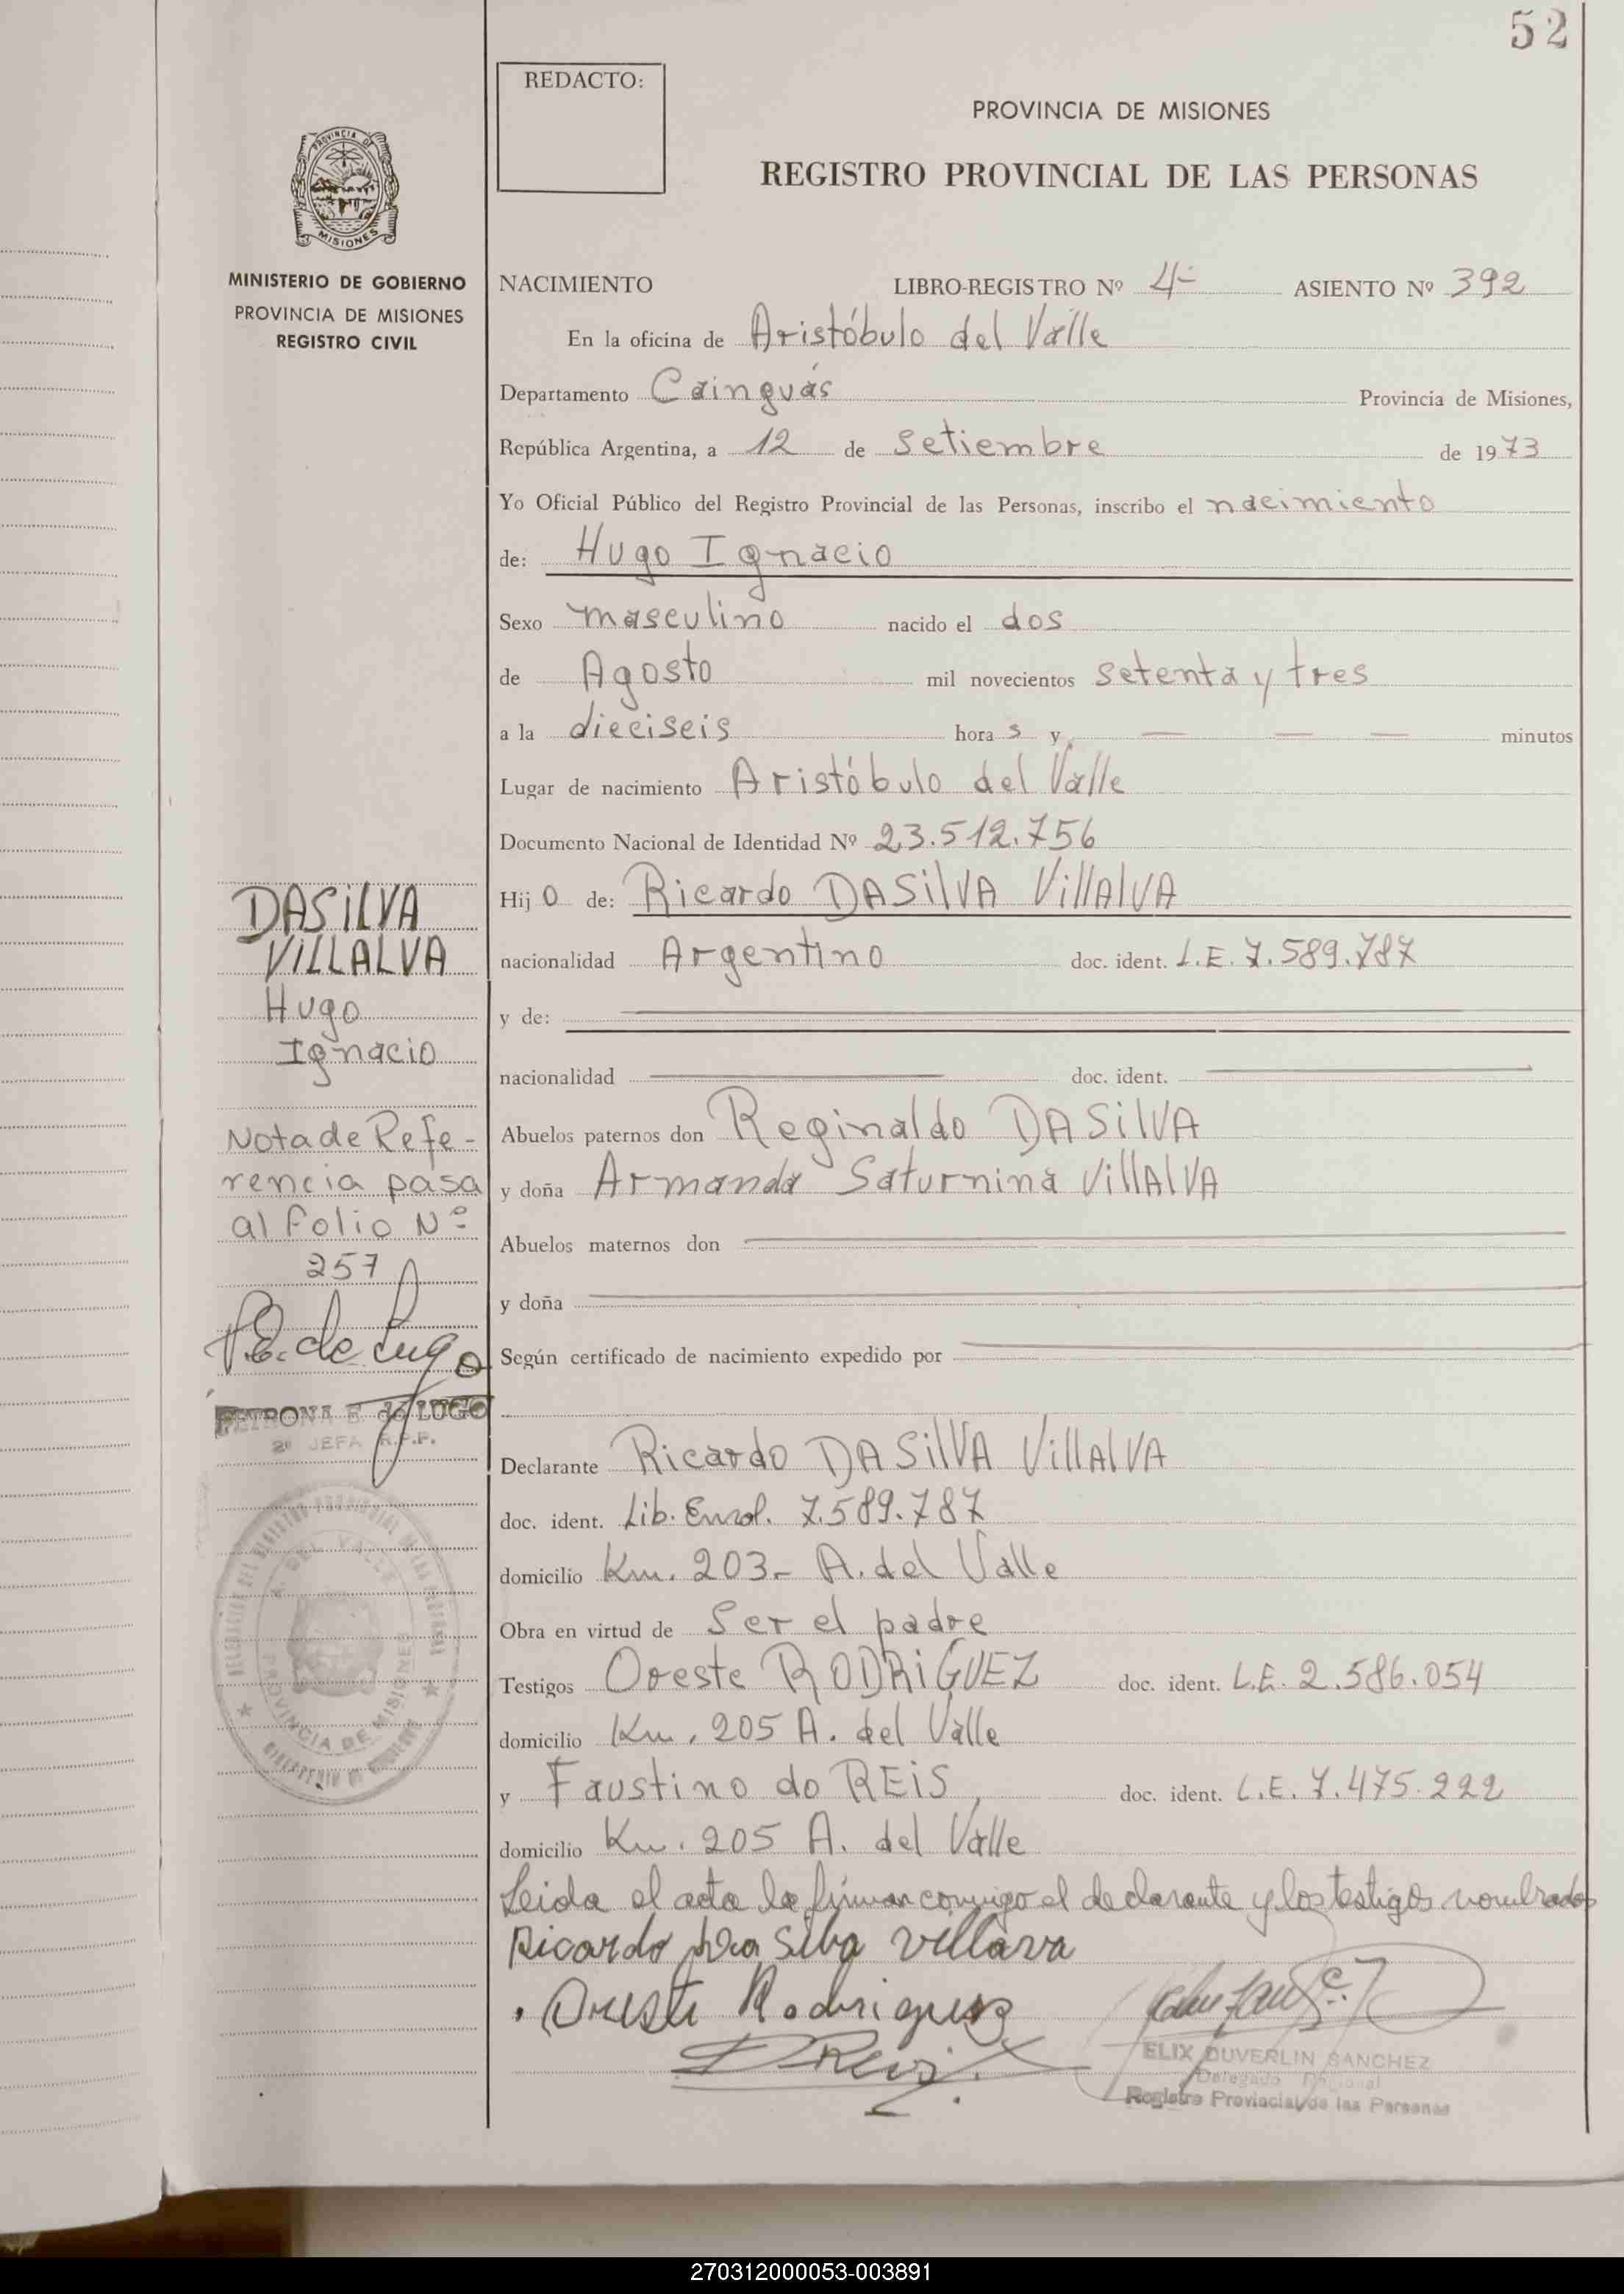 52
REDACTO:
PROVINCIA DE MISIONES
REGISTRO PROVINCIAL DE LAS PERSONAS
PROVINCIA DE
MISIONES
MINISTERIO DE GOBIERNO
PROVINCIA DE MISIONES
REGISTRO CIVIL
NACIMIENTO LIBRO-REGISTRO Nº 4- ASIENTO Nº 392
En la oficina de Aristóbulo del Valle
Departamento Cainguás Provincia de Misiones,
República Argentina, a 12 de setiembre de 1973
Yo Oficial Público del Registro Provincial de las Personas, inscribo el nacimiento
de: Hugo Ignacio
Sexo masculino nacido el dos
de Agosto mil novecientos setenta y tres
a la dieciseis hora s y — — — minutos
Lugar de nacimiento Aristóbulo del Valle
Documento Nacional de Identidad Nº 23.512.756
Hij o de: Ricardo DASilVA VillAlVA
nacionalidad Argentino doc. ident. L.E. 7.589.787
y de:
nacionalidad doc. ident.
Abuelos paternos don Reginaldo DASilVA
y doña Armanda Saturnina VillAlVA
Abuelos maternos don
y doña
Según certificado de nacimiento expedido por
Declarante Ricardo DASilVA VillAlVA
doc. ident. Lib. Enrol. 7.589.787
domicilio Km. 203.- A. del Valle
Obra en virtud de Ser el padre
Testigos Oreste RODRiGUEZ doc. ident. L.E. 2.586.054
domicilio Km. 205 A. del Valle
y Faustino do REiS, doc. ident. L.E. 7.475.222
domicilio Km. 205 A. del Valle
Leida el acta la firman conmigo el declarante y los testigos nombrados
Ricardo Da Silva villava
Oreste Rodriguez
ELIX DUVERLIN SANCHEZ
Delegado Regional
Registro Provincial de las Personas
DASiLVA
VILLALVA
Hugo
Ignacio
Nota de Refe-
rencia pasa
al folio Nº
257
P.E. de Lugo
PETRONA E. de LUGO
2º JEFA R.P.P.
A. DEL VALLE
PROVINCIA DE MISIONES
270312000053-003891